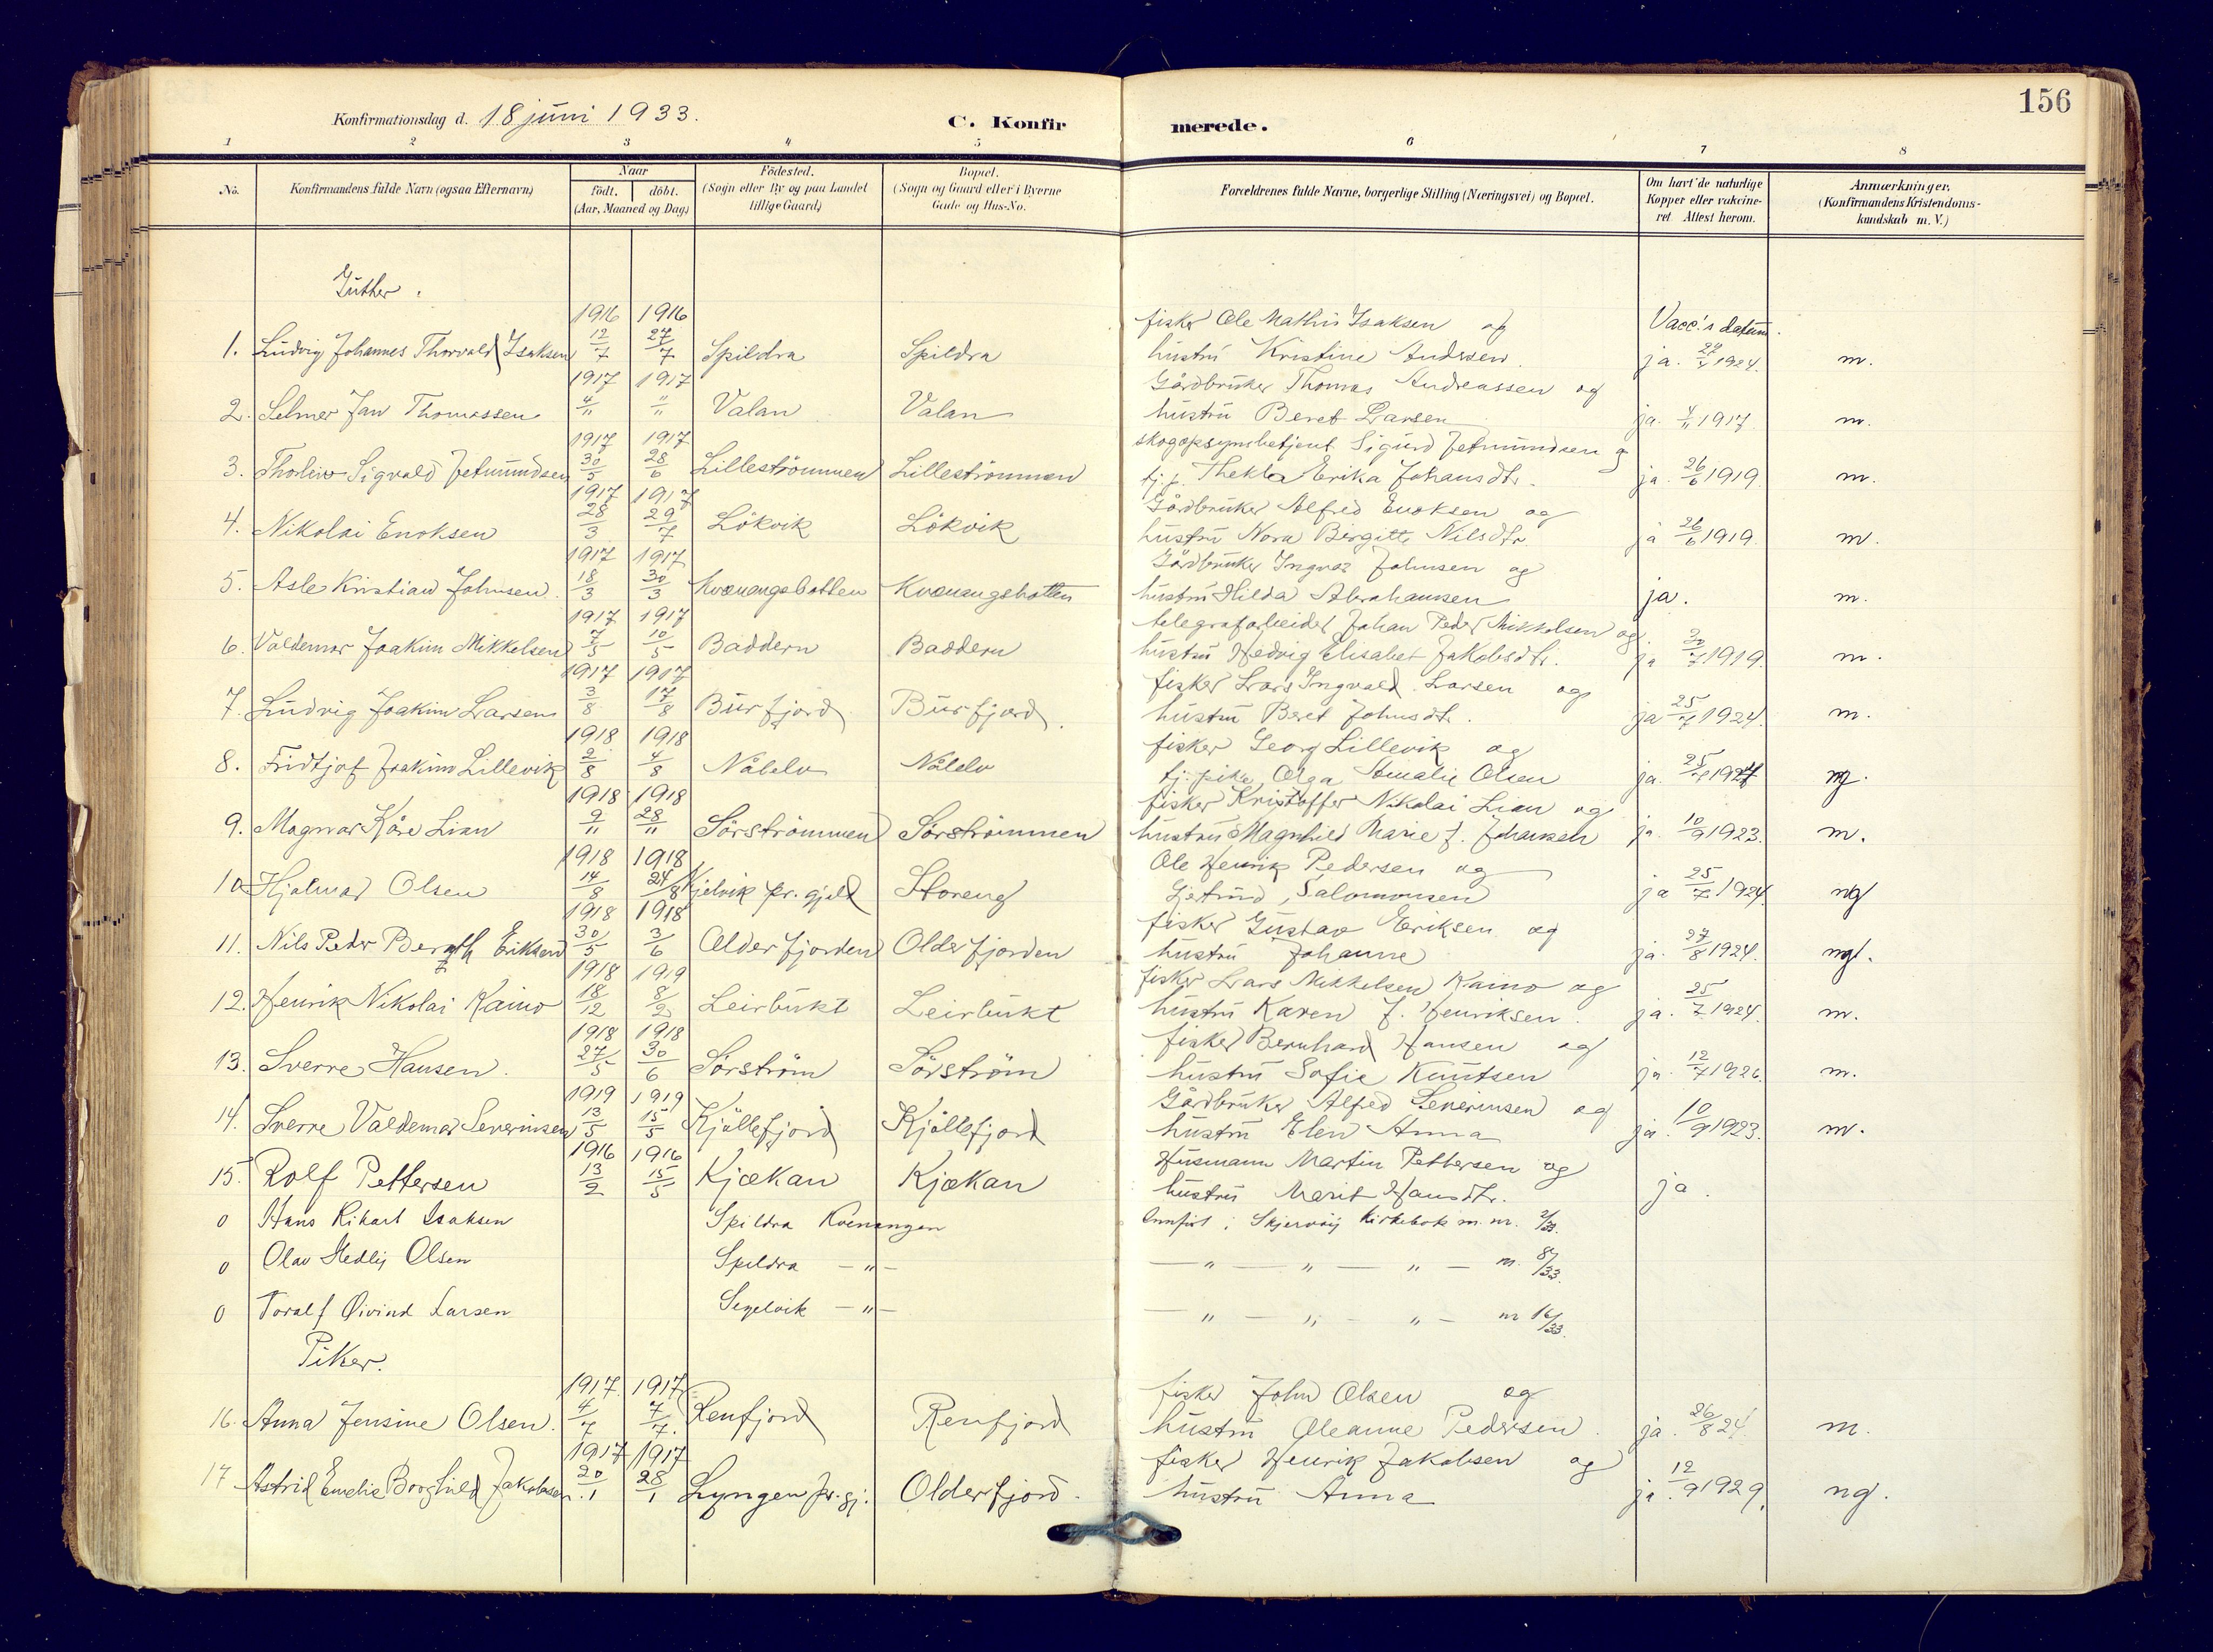 156
Konfirmationsdag d. 18 juni 1933.
C. Konfirmerede.
1 2 3 4 5 6 7 8
No. Konfirmandens fulde Navn (ogsaa Efternavn) Naar födt. döbt. (Aar, Maaned og Dag) Födested. (Sogn eller By og paa Landet tillige Gaard) Bopæl. (Sogn og Gaard eller i Byerne Gade og Hus-No. Forældrenes fulde Navne, borgerlige Stilling (Næringsvei) og Bopæl. Om havt de naturlige Kopper eller vakcineret. Attest herom. Anmærkninger. (Konfirmandens Kristendomskundskab m. V.)
Gutter.
1916 1916 fisker Ole Mathis Isaksen og Vacc.'s datum.
1. Ludvig Johannes Thorvald Isaksen 12/7 27/7 Spildra Spildra hustru Kristine Andersen. ja. 1924. m.
1917 1917 Gårdbruker Thomas Andreassen og
2. Selmer Jan Thomassen 4/11 "/11 Valan Valan hustru Beret Larsen ja. 1917. m.
1917 1917 skogopsynsbetjent Sigurd Jetmundsen og
3. Thorleiv Sigvald Jetmundsen 30/5 28/6 Lilleströmmen Lilleströmmen tj.p. Thekla Erika Johansdtr. ja. 26/6 1919 m.
1917 1917 Gårdbruker Alfred Enoksen og
4. Nikolai Enoksen 28/3 29/7 Lökvik Lökvik hustru Nora Birgitte Nilsdtr. ja 26/6 1919. m.
1917 1917 Gårdbruker Ingvar Johnsen og
5. Asle Kristian Johnsen. 18/3 30/3 Kvænangsbotten Kvænangsbotten hustru Hilda Abrahamsen ja. m.
1917 1917 telegrafarbeider Johan Peder Mikkelsen og
6. Valdemar Joakim Mikkelsen 7/5 10/5 Baddern Baddern hustru Hedvig Elisabet Jakobsdtr. ja 1919. m.
1917 1917 fisker Lars Ingvald Larsen og
7. Ludvig Joakim Larsen 3/8 17/8 Burfjord Burfjord. hustru Beret Johnsdtr. ja 25/7 1924. m.
1918 1918 fisker Georg Lillevik og
8. Fridtjof Joakim Lillevik 2/8 4/8 Nåbelv Nåbelv tj. pike Olga Amalie Olsen ja. 25/7 1924 ng.
1918 1918 fisker Kristoffer Nikolai Lian og
9. Magnar Kåre Lian 9/11 28/11 Sörströmmen Sörströmmen hustru Magnhild Marie f. Johansen ja. 10/9 1923. m.
1918 1918 Ole Henrik Pedersen og
10 Hjalmar Olsen 14/8 24/8 Kjelvik pr. gjeld Storeng Gjertrud Salomonsen ja 25/7 1924 ng
1918 1918 fisker Gustav Eriksen og
11. Nils Peder Eriksen 30/5 3/6 Olderfjorden Olderfjorden hustru Johanne ja. 27/8 1924. mgt.
1918 1919 fisker Lars Mikkelsen Kaino og
12. Henrik Nikolai Kaino 18/12 8/2 Leirbukt Leirbukt hustru Karen f. Henriksen. ja. 25/7 1924. m.
1918 1918 fisker Bernhard Hansen og
13. Sverre Hansen. 27/5 30/6 Sörström Sörström hustru Sofie Knutsen ja. 12/7 1926. m.
1919 1919 Gårdbruker Alfred Severinsen og
14. Sverre Valdemar Severinsen 13/5 15/5 Kjöllefjord Kjöllefjord hustru Elen Anna ja. 10/9 1923. m.
1916 1916 Husmann Martin Pettersen og
15. Rolf Pettersen 13/2 15/5 Kjækan Kjækan hustru Marit Hansdtr. ja.
0 Hans Rikart Isaksen Spildra Kvenangen Innført i Skjervöy kirkebok m. nr. 2/33.
0 Olav Hedly Olsen Spildra — " — — " — " — " — nr. 8/33.
0 Toralf Øivind Larsen Segelvik — " — — " — " — " — nr 16/33.
Piker.
1917 1917 fisker John Olsen og
16. Anna Jensine Olsen. 4/7 7/7. Renfjord Renfjord hustru Oleanne Pedersen. ja. 26/8 24. m.
1917 1917 fisker Henrik Jakobsen og
17 Astrid Emelie Borghild Jakobsen. 20/1 28/1 Lyngen pr.gj. Olderfjord. hustru Anna ja. 12/9 1929. ng.